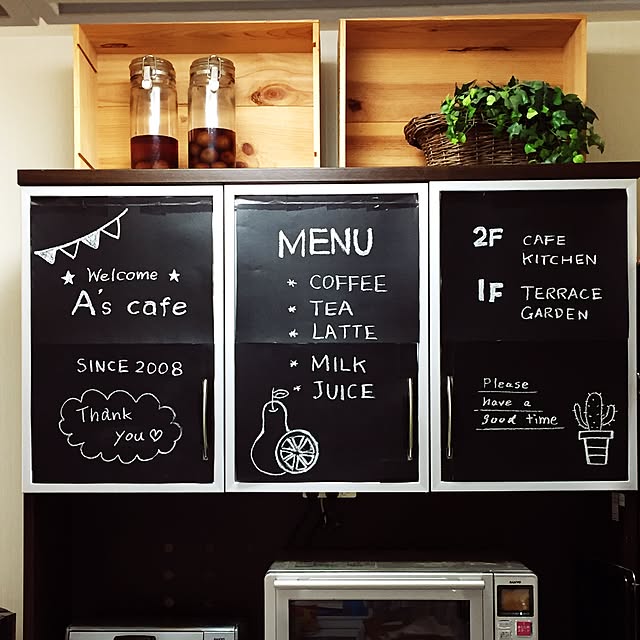 ★ Welcome ★
A's cafe
SINCE 2008
Thank
you♡
MENU
* COFFEE
* TEA
* LATTE
* MILK
* JUICE
2F CAFE
KITCHEN
1F TERRACE
GARDEN
Please
have a
good time
SANYO